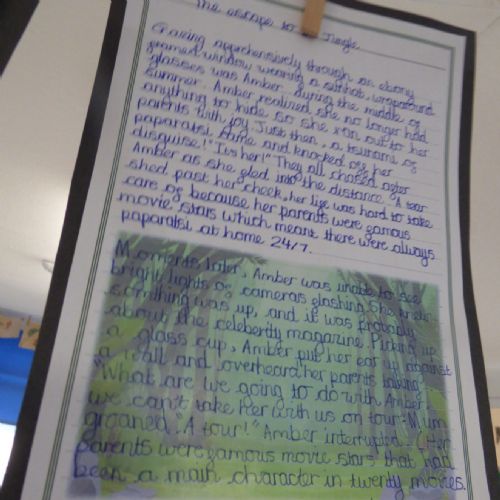 The escape to Jungle
Gazing apprehensively through an ebony
framed window wearing a sunhat, wraparound
glasses was Amber, during the middle of
summer. Amber realised she no longer had
anything to hide so she ran out to her
parents with joy. Just then, a tsunami of
paparatsi came and knocked off her
disguise! "Its her!" They all chased after
Amber as she fled into the distance. A tear
shed past her cheek, her life was hard to take
care of because her parents were famous
movie stars which meant there were always
paparatsi at home 24/7.
Moments later, Amber was unable to see
bright lights of cameras flashing. She knew
somthing was up, and it was probably
about the celebertly magazine. Picking up
a glass cup, Amber put her ear up against
a wall and overheard her parents talking.
"What are we going to do with Amber,
we can't take her with us on tour" Mum
groaned. "A tour!" Amber interrupted. Her
parents were famous movie stars that had
been a main character in twenty movies.